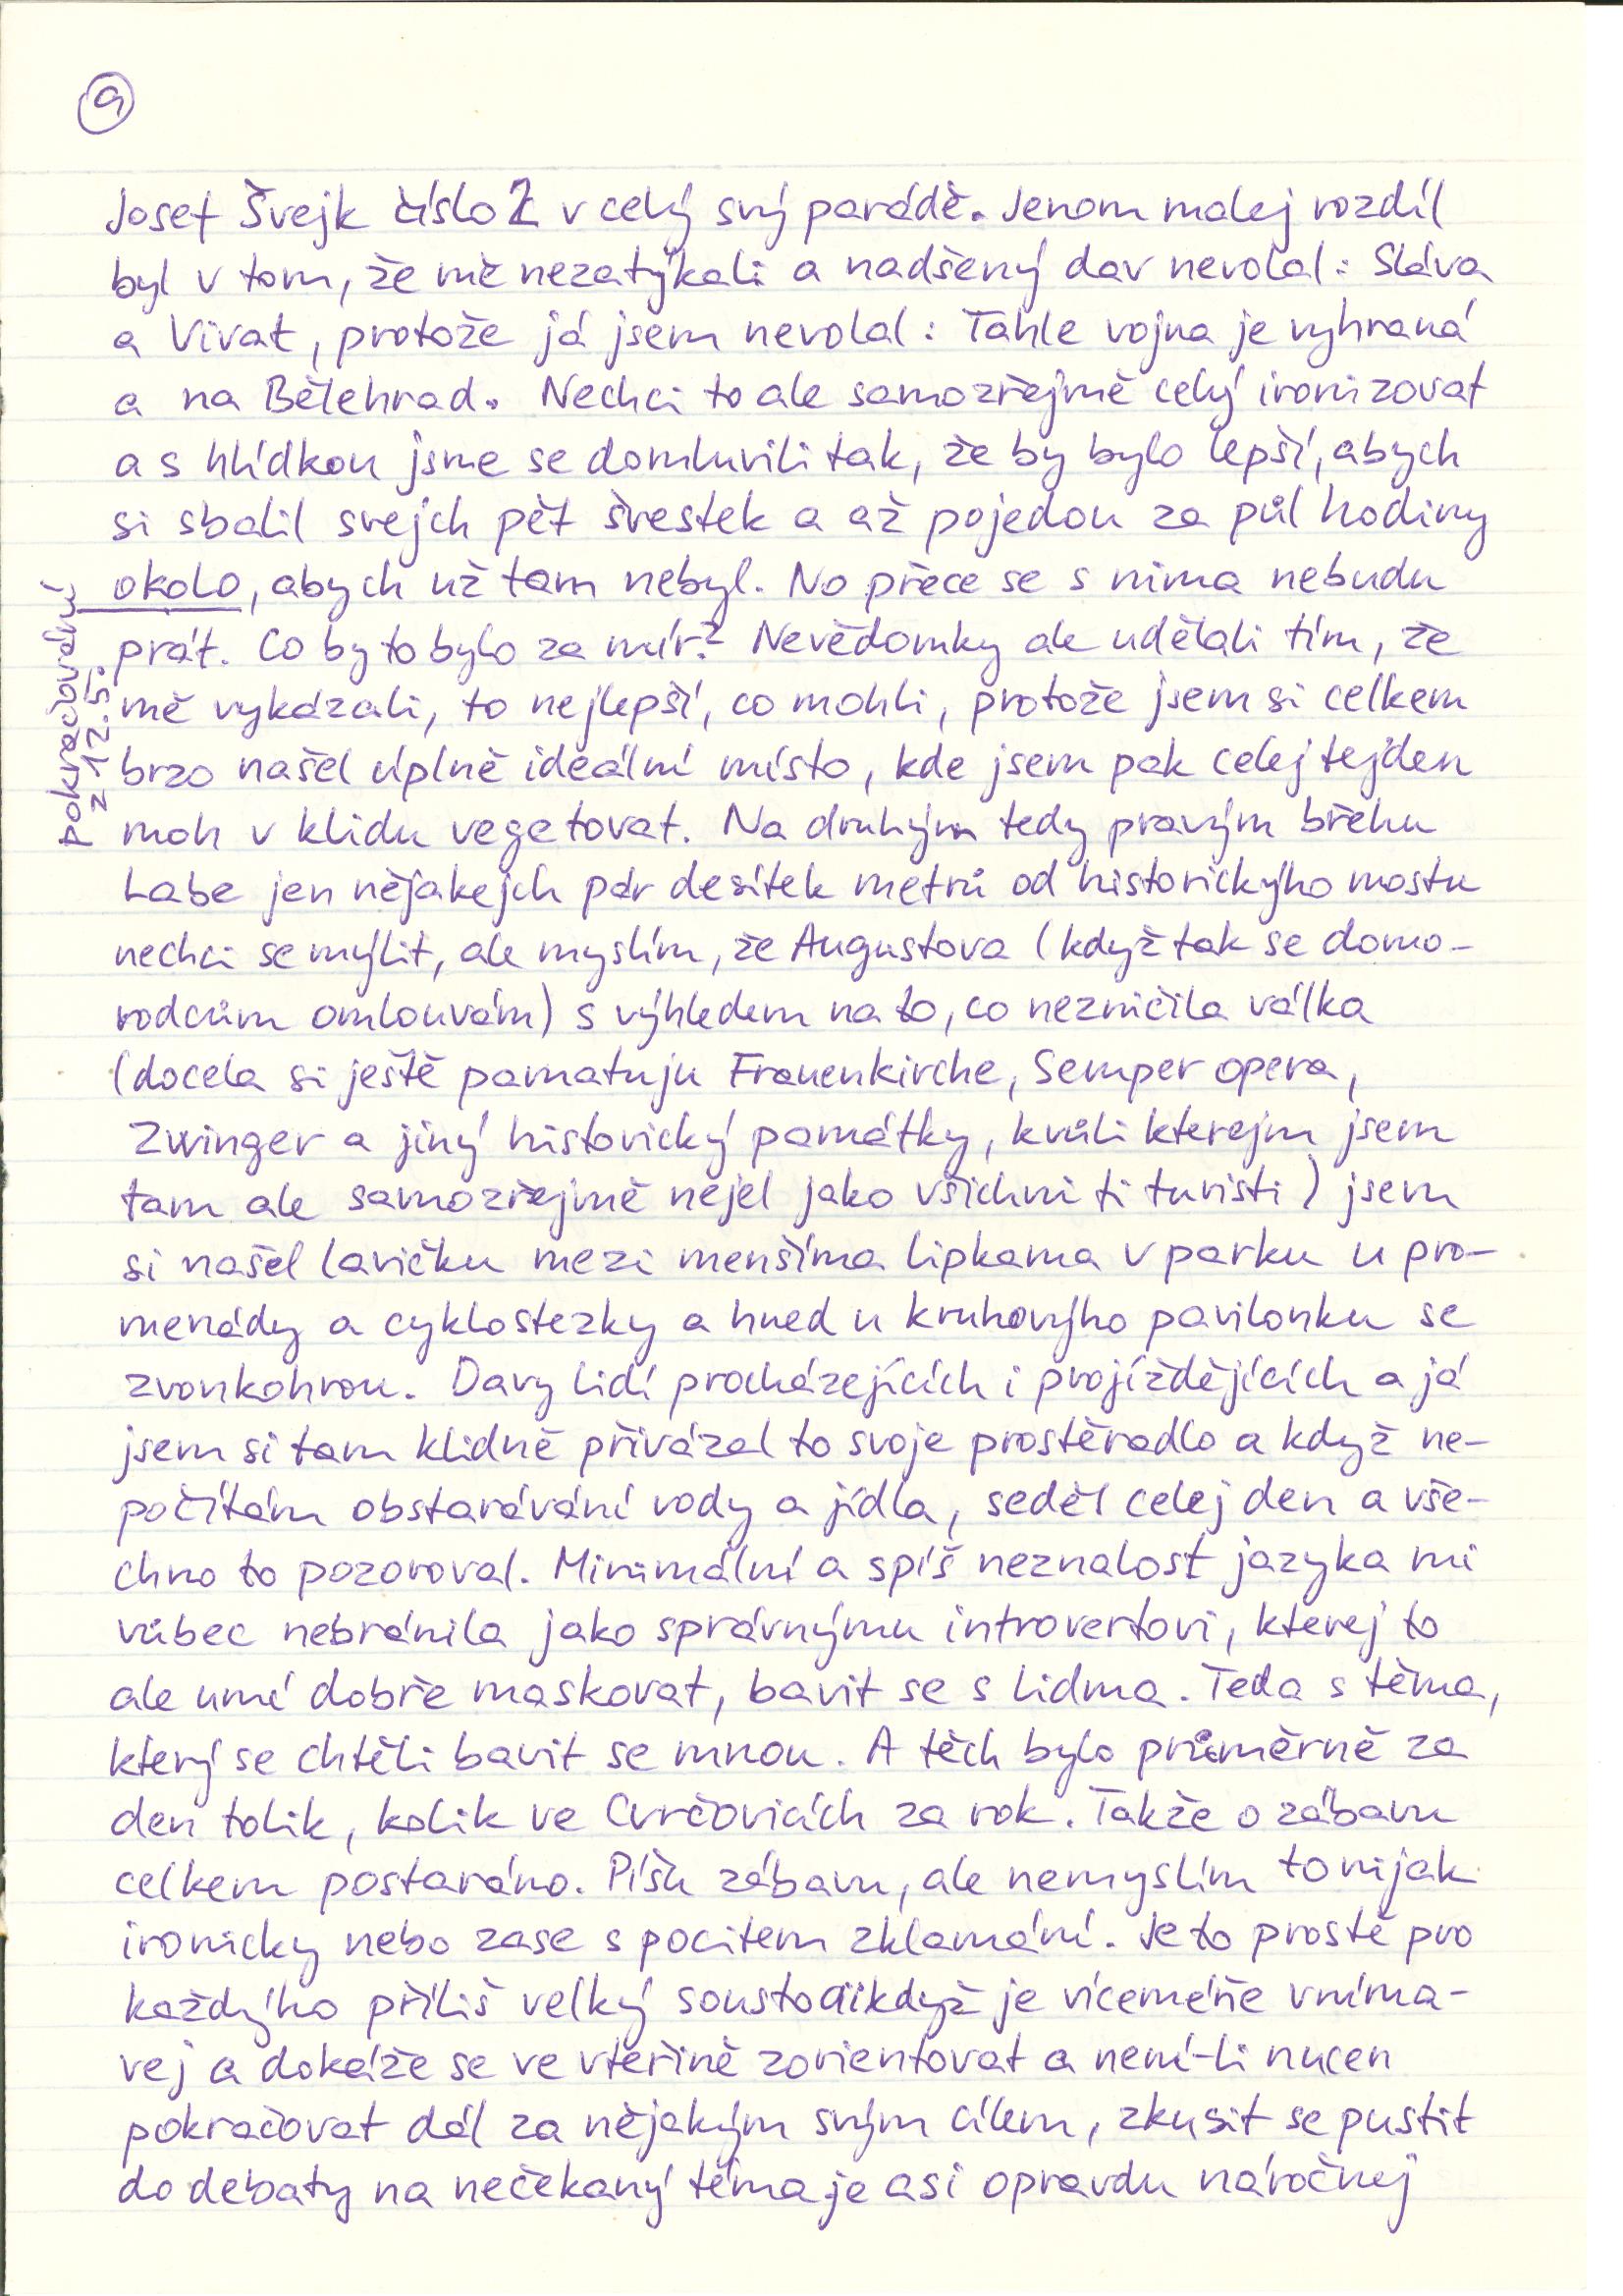 9
Josef Švejk číslo 2 v celý svý parádě. Jenom malej rozdíl
byl v tom, že mě nezatýkali a nadšený dav nevolal: Sláva
a Vivat, protože já jsem nevolal: Tahle vojna je vyhraná
a na Bělehrad. Nechci to ale samozřejmě celý ironizovat
a s hlídkou jsme se domluvili tak, že by bylo lepší, abych
si sbalil svejch pět švestek a až pojedou za půl hodiny
okolo, abych už tam nebyl. No přece se s nima nebudu
prát. Co by to bylo za mír? Nevědomky ale udělali tím, že
mě vykázali, to nejlepší, co mohli, protože jsem si celkem
brzo našel úplně ideální místo, kde jsem pak celej tejden
moh v klidu vegetovat. Na druhým tedy pravým břehu
Labe jen nějakejch pár desítek metrů od historickýho mostu
nechci se mýlit, ale myslím, že Augustova (když tak se domo-
rodcům omlouvám) s výhledem na to, co nezničila válka
(docela si ještě pamatuju Frauenkirche, Semper opera,
Zwinger a jiný historický památky, kvůli kterejm jsem
tam ale samozřejmě nejel jako všichni ti turisti) jsem
si našel lavičku mezi menšíma lipkama v parku u pro-
menády a cyklostezky a hned u kruhovýho pavilonku se
zvonkohrou. Davy lidí procházejících i projíždějících a já
jsem si tam klidně přivázal to svoje prostěradlo a když ne-
počítám obstarávání vody a jídla, seděl celej den a vše-
chno to pozoroval. Minimální a spíš neznalost jazyka mi
vůbec nebránila jako správnýmu introvertovi, kterej to
ale umí dobře maskovat, bavit se s lidma. Teda s těma,
který se chtěli bavit se mnou. A těch bylo průměrně za
den tolik, kolik ve Cvrčovicích za rok. Takže o zábavu
celkem postaráno. Píšu zábavu, ale nemyslím to nijak
ironicky nebo zase s pocitem zklamání. Je to prostě pro
každýho příliš velký sousto a i když je víceméně vníma-
vej a dokáže se ve vteřině zorientovat a není-li nucen
pokračovat dál za nějakým svým cílem, zkusit se pustit
do debaty na nečekaný téma je asi opravdu náročnej
pokračování
z 12.5.